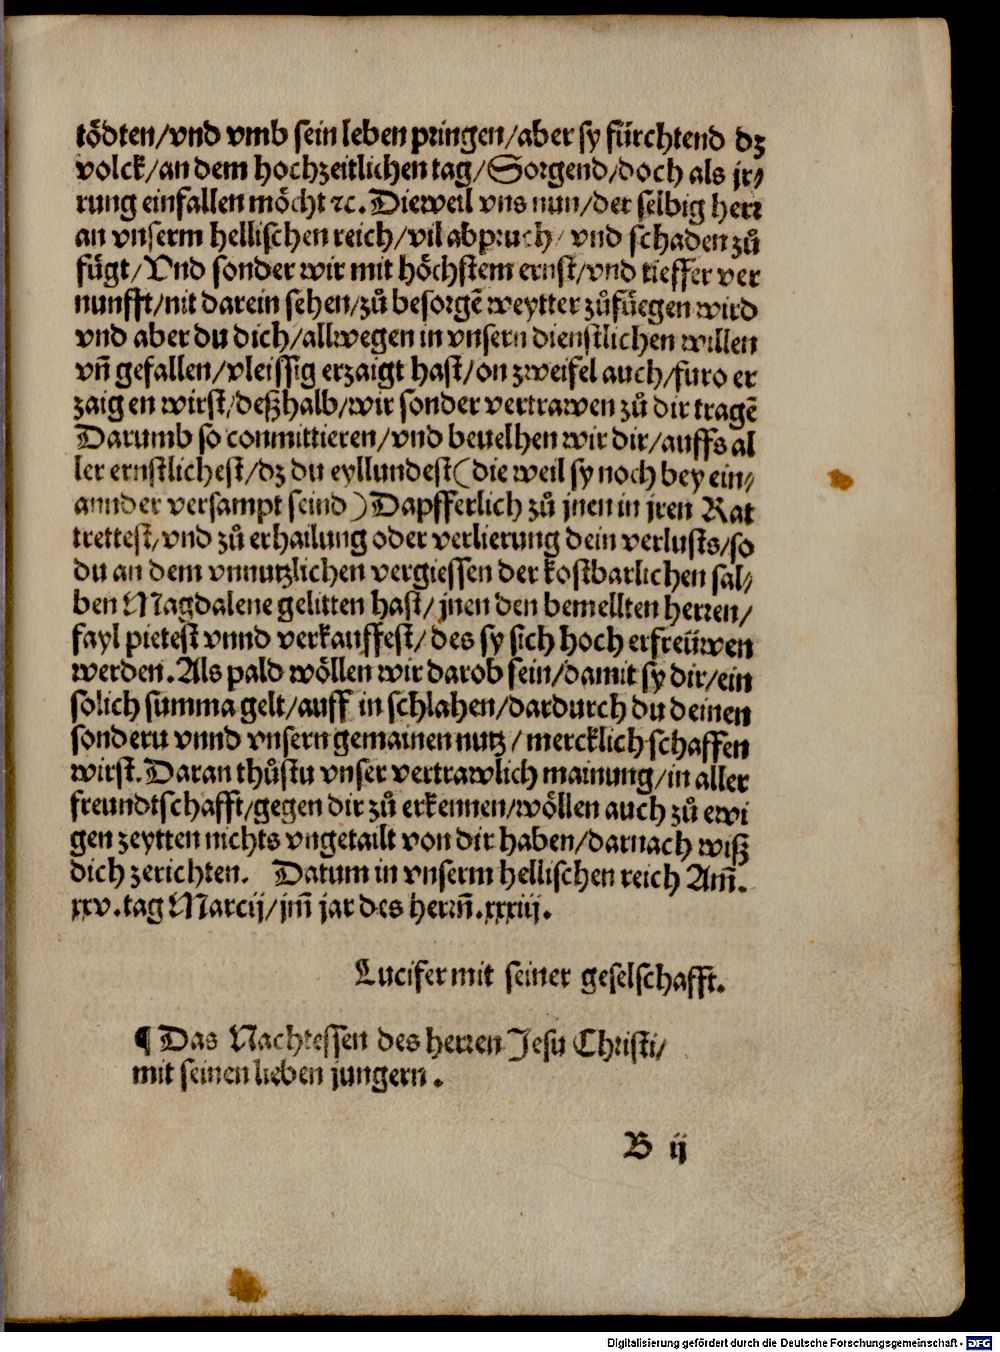 tödten/vnd vmb sein leben pringen/aber sy fürchtend dz
volck/an dem hochzeitlichen tag/Sorgend/doch als jr⸗
rung einfallen möcht ꝛc. Dieweil vns nun/der selbig herꝛ
an vnserm hellischen reich/vil abpruch/ vnd schaden zů
fügt/Vnd sonder wir mit höchstem ernst/vnd tieffer ver
nunfft/nit darein sehen/zů besorgē weytter zůfüegen wird
vnd aber du dich/allwegen in vnsern dienstlichen willen
vn̄ gefallen/vleissig erzaigt hast/on zweifel auch/furo er
zaig en wirst/deßhalb/wir sonder vertrawen zů dir tragē
Darumb so conmittieren/vnd beuelhen wir dir/auffs al
ler ernstlichest/dz du eyllundest(die weil sy noch bey ein⸗
annder versampt seind)Dapfferlich zů jnen in jren Rat
trettest/vnd zů erhailung oder verlierung dein verlusts/so
du an dem vnnutzlichen vergiessen der kostbarlichen sal⸗
ben Magdalene gelitten hast/jnen den bemellten herren/
fayl pietest vnnd verkauffest/des sy sich hoch erfreüwen
werden. Als pald wöllen wir darob sein/damit sy dir/ein
solich summa gelt/auff in schlahen/dardurch du deinen
sonderu vnnd vnsern gemainen nutz/ mercklich schaffen
wirst. Daran thůstu vnser vertrawlich mainung/in aller
freundtschafft/gegen dir zů erkennen/wöllen auch zů ewi
gen zeytten nichts vngetailt von dir haben/darnach wiß
dich zerichten. Datum in vnserm hellischen reich Am̄.
xxv. tag Marcij/jm̄ jar des herrn̄. xxxiij.
Lucifer mit seiner geselschafft.
¶ Das Nachtessen des herren Jesu Christi/
mit seinen lieben jungern.
B ij
Digitalisierung gefördert durch die Deutsche Forschungsgemeinschaft - DFG